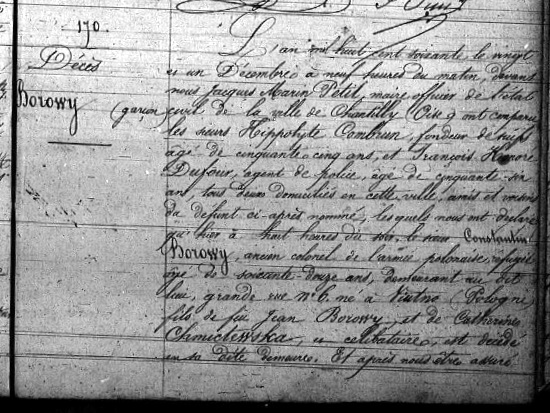 190.
Décès
Borowy
(garçon)
L'an mil huit cent soixante, le vingt
et un Décembre à neuf heures du matin, devant
nous Jacques Marin Petit, maire officier de l'état
civil de la ville de Chantilly (Oise) ont comparu
les sieurs Hippolyte Combrun, fondeur de suifs
âgé de cinquante cinq ans, et François Honoré
Dufour, agent de police, âgé de cinquante six
ans, tous deux domiciliés en cette ville, amis et
du défunt ci-après nommé, lesquels nous ont déclaré
qu'hier à huit heures du soir, le sieur Constantin
Borowy, ancien colonel de l'armée polonaise, refugié
âgé de soixante-douze ans, demeurant au dit
lieu, grande rue n° 6, né à (Pologne)
fils de feu Jean Borowy, et de Catherine
Chmielewska, et célibataire, est décédé
en sa dite demeure. Et après nous être assuré